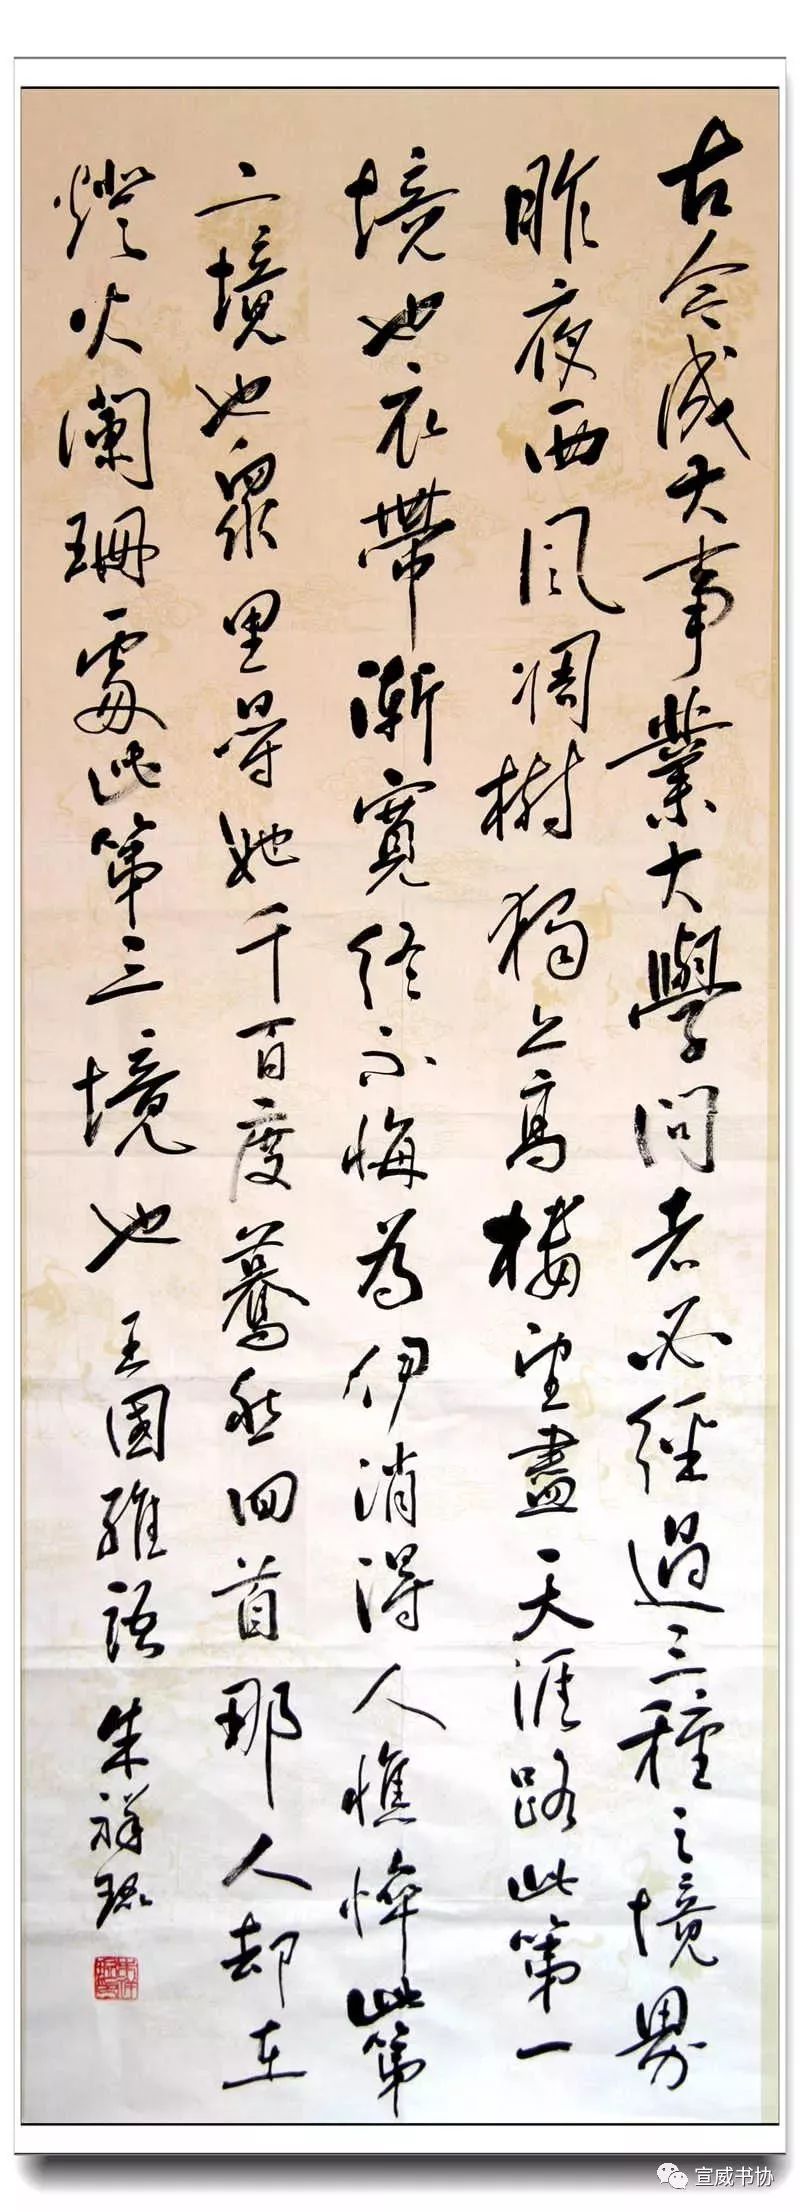 古今成大事業大學問者必經過三種之境界
昨夜西风凋樹獨上高樓望盡天涯路此第一
境也衣帶漸寬終不悔為伊消得人憔悴此第
二境也眾里尋她千百度驀然回首那人却在
燈火闌珊處此第三境也 王國維語 朱祥
宣威书协